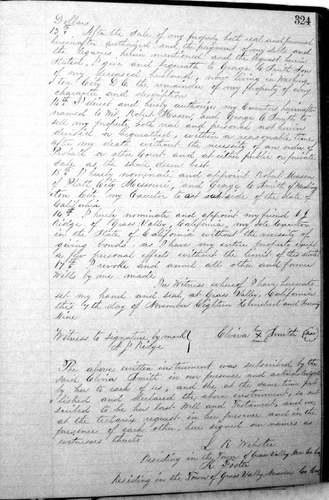 324
Dollars.
13th. After the sale of my property both real and personal
hereinafter authorized and the payment of my debts and
the legacies herein mentioned and the bequest herein
stated, I give and bequeath to George C. Smith Son
of my deceased husband, now living in Washing
ton City D.C. the remainder of my property of every
character and description
14th I direct and hereby authorize my Executors hereinafter
named to wit Robert Mason, and George C. Smith to
sell my property both real and personal not herein
devised or bequeathed, within a reasonable time
after my death without the necessity of an order of
Probate or other Court and at either public or private
sale as they shall deem best.
15th I hereby nominate and appoint Robert Mason
of Platt City Missouri, and George C. Smith of Washing
ton City my Executor to act outside of the State of
California
16th I hereby nominate and appoint my friend
Ridge of Grass Valley, California, my sole Executor
in the State of California without the necessity of
giving bonds, as I have my entire property except
a few personal effects without the limit of this state
17th I revoke and annul all other and former
Wills by me made.
In Witness whereof I have hereunto
set my hand and seal at Grass Valley, California
this 7th day of November Eighteen Hundred and Seventy
Nine
Witness to signature by mark
Ridge
Smith
The above written instrument was subscribed by the
said Smith in our presence and acknowledged
by her to each of us, and she at the same time pub
lished and declared the above instrument, so sub
scribed to be her last Will and Testament, and we
at the testatrix request in her presence and in the
presence of each other here signed our names as
witnesses thereto
Webster
Residing in the Town of Grass Valley
Foster
Residing in the Town of Grass Valley, Nevada Co. Cal.